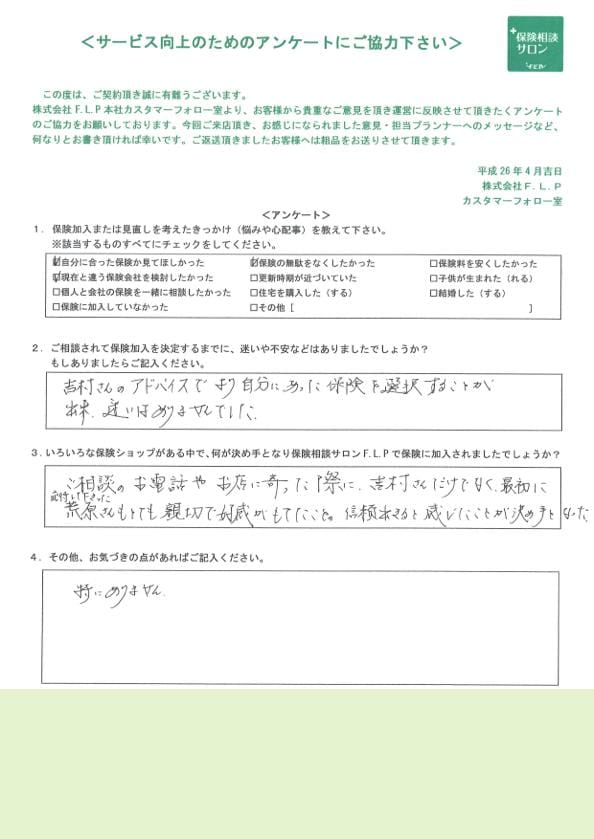 ＜サービス向上のためのアンケートにご協力下さい＞
+保険相談
サロン
この度は、ご契約頂き誠に有難うございます。
株式会社F.L.P本社カスタマーフォロー室より、お客様から貴重なご意見を頂き運営に反映させて頂きたくアンケート
のご協力をお願いしております。今回ご来店頂き、お感じになられました意見・担当プランナーへのメッセージなど、
何なりとお書き頂ければ幸いです。ご返送頂きましたお客様へは粗品をお送りさせて頂きます。
平成26年4月吉日
株式会社F.L.P
カスタマーフォロー室
＜アンケート＞
1．保険加入または見直しを考えたきっかけ（悩みや心配事）を教えて下さい。
※該当するものすべてにチェックをしてください。
☑自分に合った保険か見てほしかった ☑保険の無駄をなくしたかった □保険料を安くしたかった
☑現在と違う保険会社を検討したかった □更新時期が近づいていた □子供が生まれた（れる）
□個人と会社の保険を一緒に相談したかった □住宅を購入した（する） □結婚した（する）
□保険に加入していなかった □その他［ ］
2．ご相談されて保険加入を決定するまでに、迷いや不安などはありましたでしょうか？
もしありましたらご記入ください。
吉村さんのアドバイスでより自分にあった保険を選択することが
出来、迷いはありませんでした。
3．いろいろな保険ショップがある中で、何が決め手となり保険相談サロンF.L.Pで保険に加入されましたでしょうか？
ご相談のお電話やお店に寄った際に、吉村さんだけでなく、最初に
受付いただきった
荒原さんもとても親切で好感がもてたこと。信頼出来ると感じたことが決め手となった
4．その他、お気づきの点があればご記入ください。
特にありません。